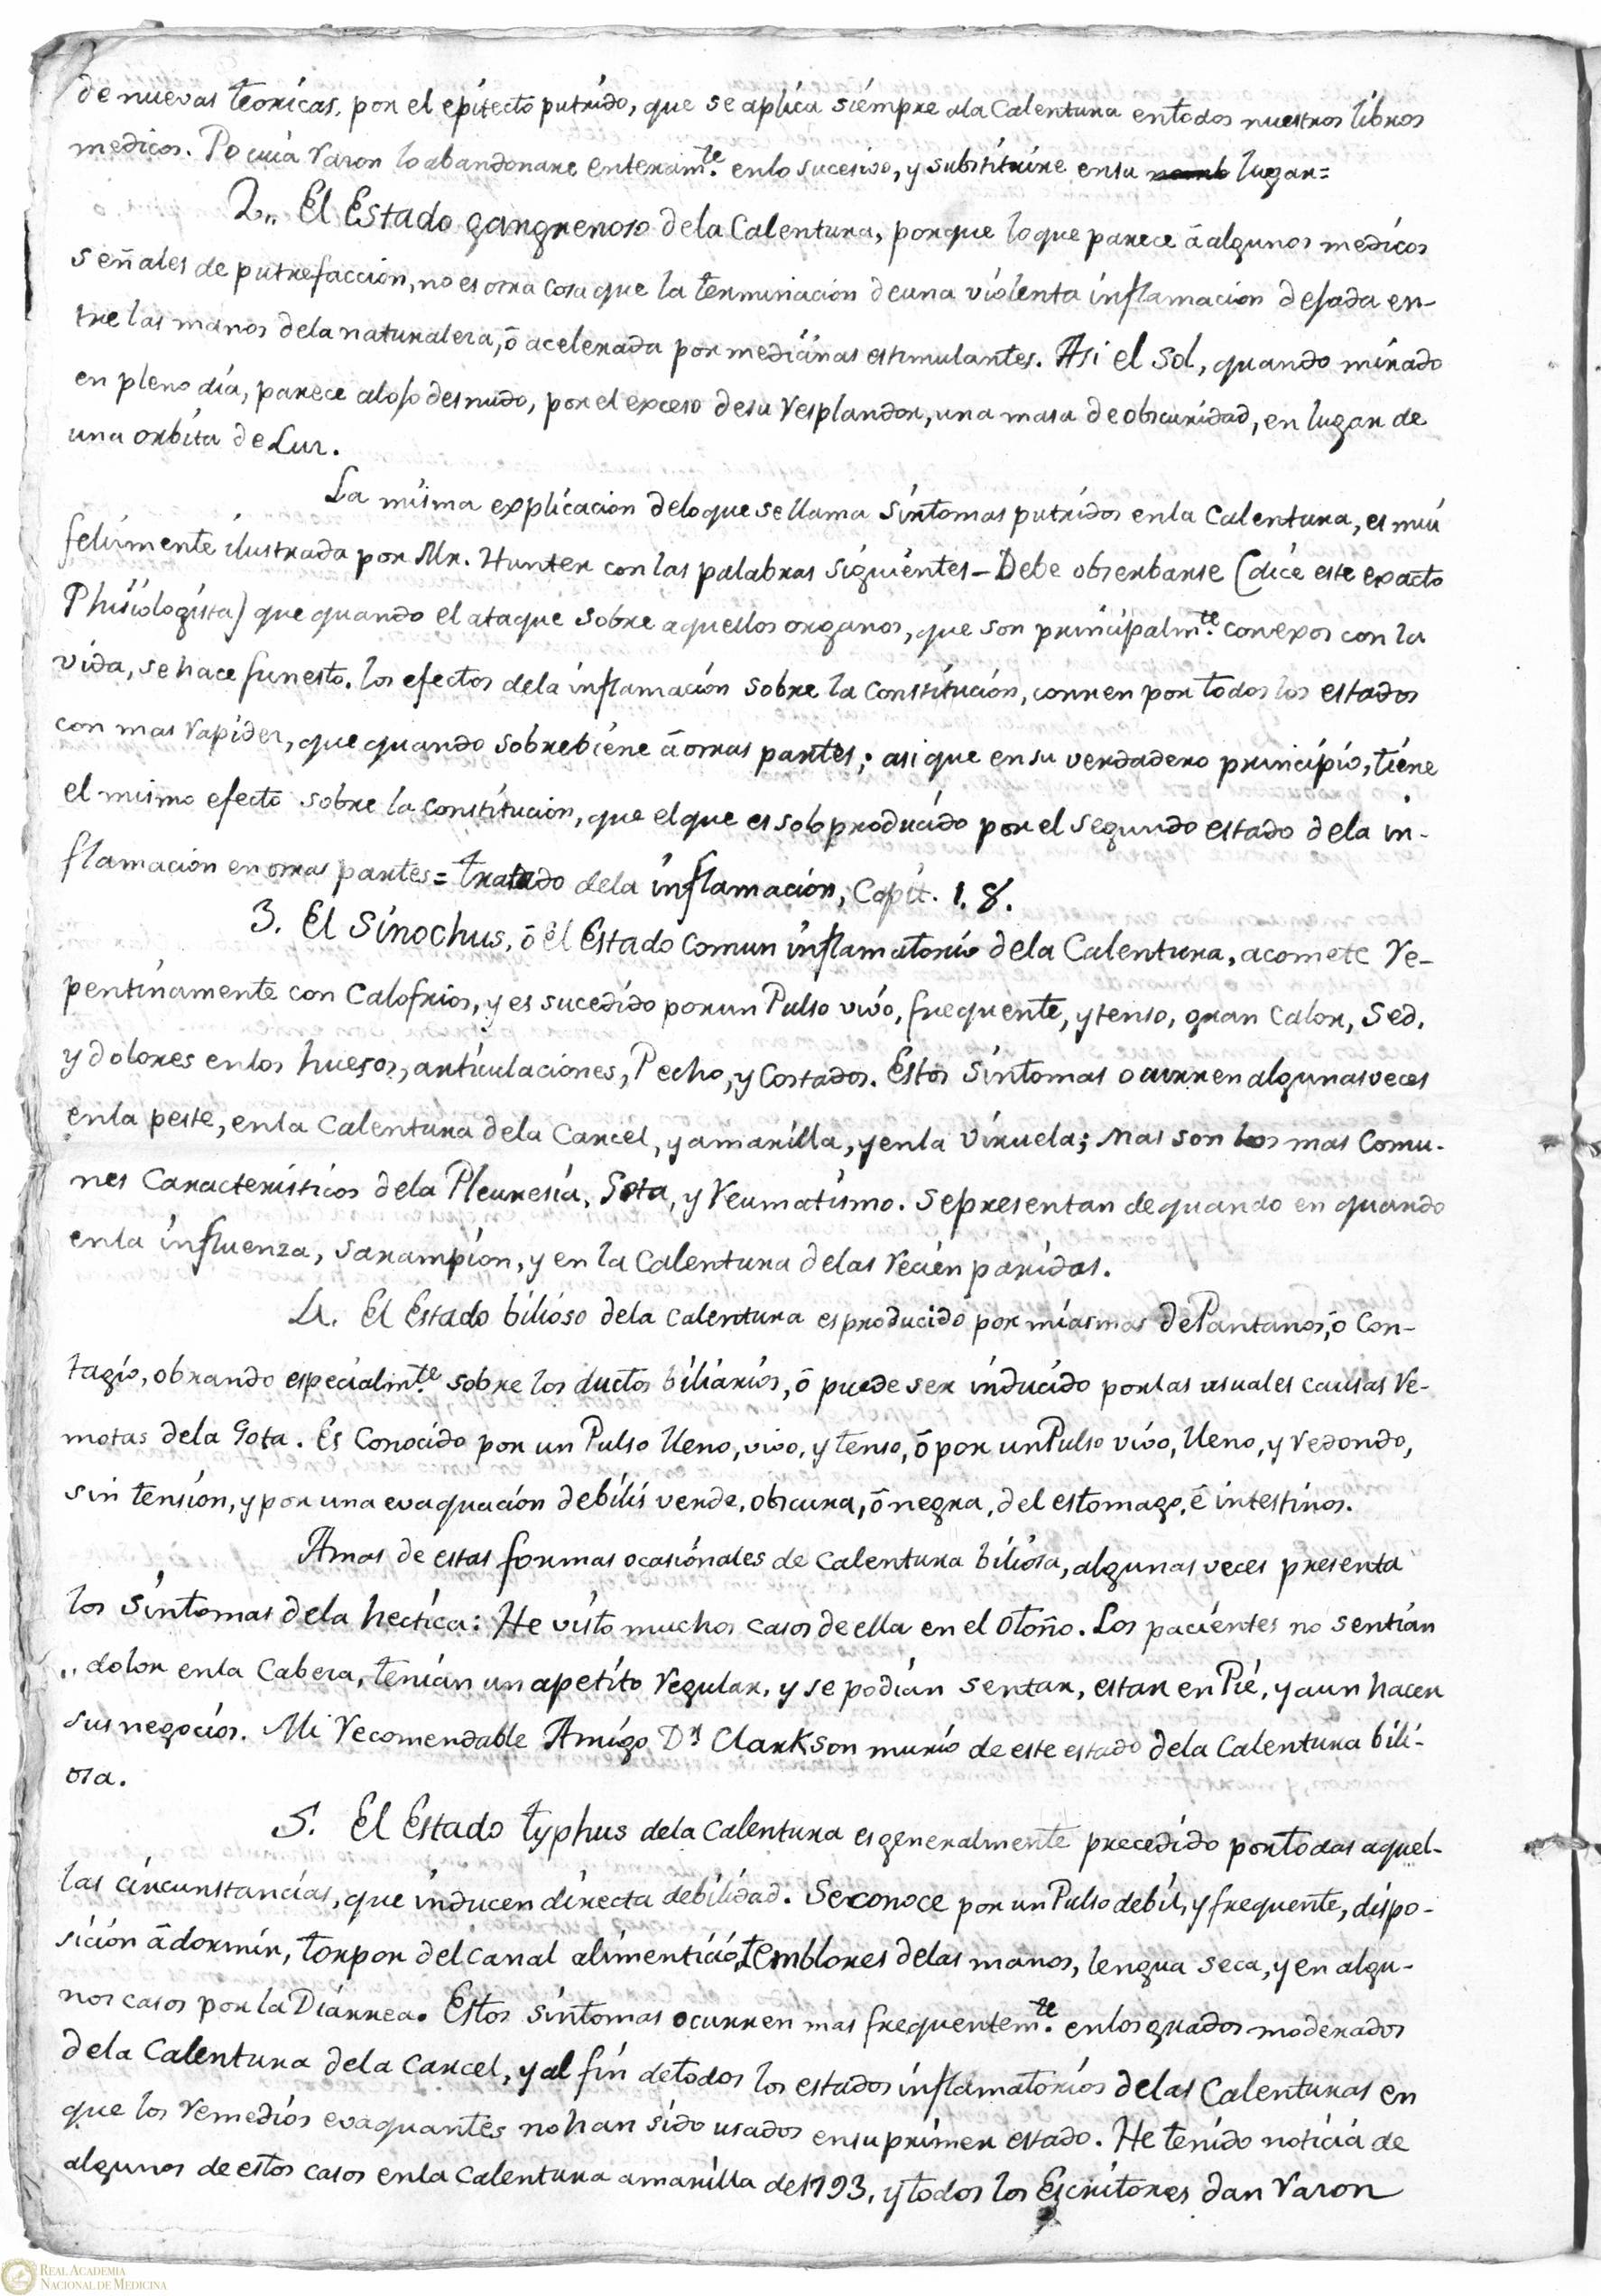 de nuevas teoricas, por el epitecto putrido, que se aplica siempre ala Calentura entodos nuestros libros
medicos. Po cuia razon lo abandonare enteram.te enlo sucesivo, y substituire ensu lugar=
2,, El Estado gangrenoso dela Calentura, porque lo que parece á algunos medicos
señales de putrefaccion, no es otra cosa que la terminacion deuna violenta inflamacion dejada en-
tre las manos dela naturaleza, ó acelerada por medicinas estimulantes. Asi el Sol, quando mirado
en pleno dia, parece alojo desnudo, por el exceso desu resplandor, una masa de obscuridad, en lugar de
una orbita de Luz.
La misma explicacion delo que se llama sintomas putridos enla Calentura, es mui
felizmente ilustrada por Mr. Hunter con las palabras siguientes - Debe obserbarse (dice este exacto
Phisiologista) que quando el ataque sobre aquellos organos, que son principalm.te conexos con la
vida, se hace funesto. los efectos dela inflamación sobre la Constitución, corren por todos los estados
con mas rapidez, que quando sobrebiene á otras partes; asi que en su verdadero principio, tiene
el mismo efecto sobre la constitucion, que el que es solo producido por el segundo estado dela in-
flamacion en otras partes = tratado dela inflamación, Capit. 1. 8.
3. El Sinochus, ó el Estado comun inflamatorio dela Calentura, acomete re-
pentinamente con Calofrios, y es sucedido por un Pulso vivo, frequente, y tenso, gran Calor, Sed,
y dolores enlos huesos, articulaciones, Pecho, y Costados. Estos sintomas ocurren algunas veces
enla peste, enla Calentura dela Carcel, y amarilla, y enla viruela; mas son los mas Comu-
nes Caracteristicos dela Pleuresia, Gota, y reumatismo. Se presentan de quando en quando
enla influenza, sarampion, y en la Calentura delas recien paridas.
4. El Estado bilioso dela Calentura es producido por miasmas de Pantanos, ó Con-
tagio, obrando especialm.te sobre los ductos biliarios, ó puede ser inducido por las usuales causas re-
motas dela Gota. Es Conocido por un Pulso lleno, vivo, y tenso, ó por un Pulso vivo, lleno, y redondo,
sin tension, y por una evaquación debilis verde, obscura, ó negra, del estomago, é intestinos.
Amas de estas formas ocasiónales de Calentura biliosa, algunas veces presenta
los sintomas dela hectica: He visto muchos casos de ella en el otoño. Los pacientes no sentian
,, dolor enla Cabeza, tenian un apetito regular, y se podian sentar, estar en Pie, y aun hacer
sus negocios. Mi recomendable Amigo Dn Clarkson murió de este estado dela Calentura bili-
osa.
5. El Estado typhus dela Calentura es generalmente precedido por todas aquel-
las circunstancias, que inducen directa debilidad. Se conoce por un Pulso debil, y frequente, dispo-
sición á dormir, torpor del canal alimenticio, temblores delas manos, lengua seca, y en algu-
nos casos por la Diarrea. Estos sintomas ocurren mas frequentem.te enlos grados moderados
dela Calentura dela Carcel, y al fin detodos los estados inflamatorios delas Calenturas en
que los remedios evaquantes no han sido usados ensu primer estado. He tenido noticia de
algunos de estos casos enla Calentura amarilla de 1793, y todos los Escritores dan razon
REAL ACADEMIA
NACIONAL DE MEDICINA